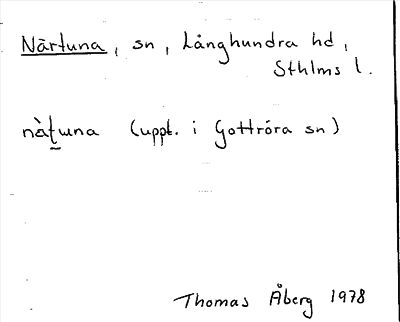 Närtuna, sn, Långhundra hd,
Sthlms l.
nàt̲una (uppt. i Gottröra sn)
Thomas Åberg 1978